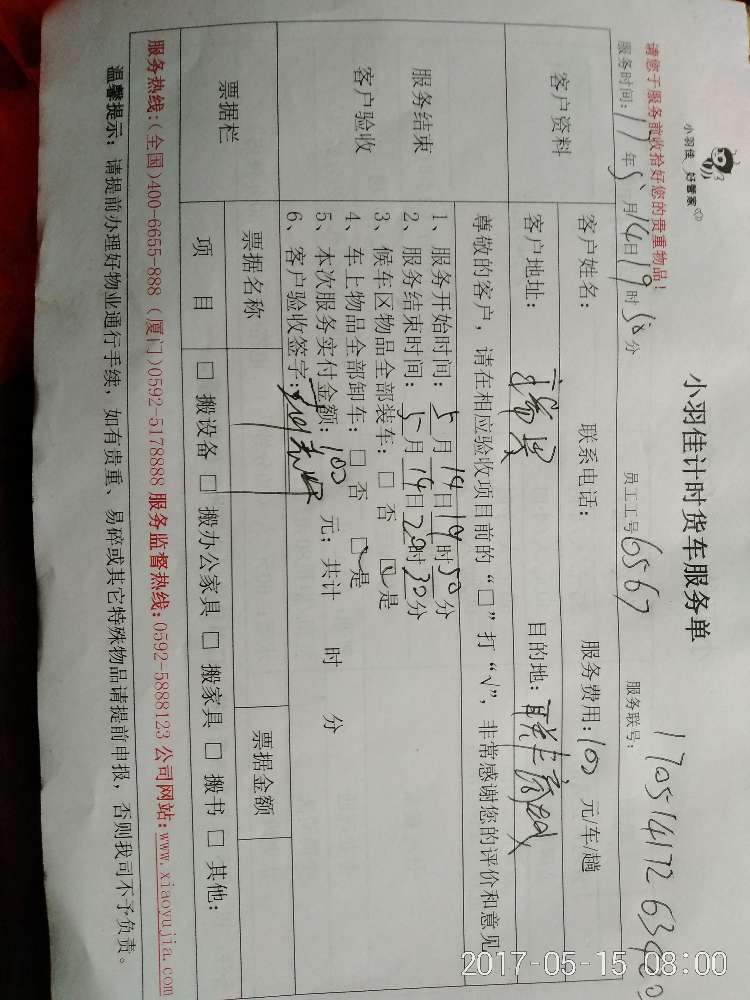 小羽佳 好管家
小羽佳计时货车服务单
请您于服务前收拾好您的贵重物品！
服务时间：17年5月14日19时50分 员工工号6567 服务联号：
客户资料
客户姓名： 联系电话： 服务费用：100 元/车/趟
客户地址： 目的地：
尊敬的客户，请在相应验收项目前的“□”打“√”，非常感谢您的评价和意见
服务结束
客户验收
1、服务开始时间：5月14日19时50分
2、服务结束时间：5月14日20时30分
3、候车区物品全部装车：□否 ☑是
4、车上物品全部卸车：□否 ☑是
5、本次服务实付金额：100 元；共计 时 分
6、客户验收签字：
票据栏
票据名称 票据金额
项 目 □ 搬设备 □ 搬办公家具 □ 搬家具 □ 搬书 □ 其他：
服务热线：（全国）400-6655-888（厦门）0592-5178888 服务监督热线：0592-5888123 公司网站：www.xiaoyujia.com
温馨提示：请提前办理好物业通行手续，如有贵重、易碎或其它特殊物品请提前申报，否则我司不予负责。
2017-05-15 08:00